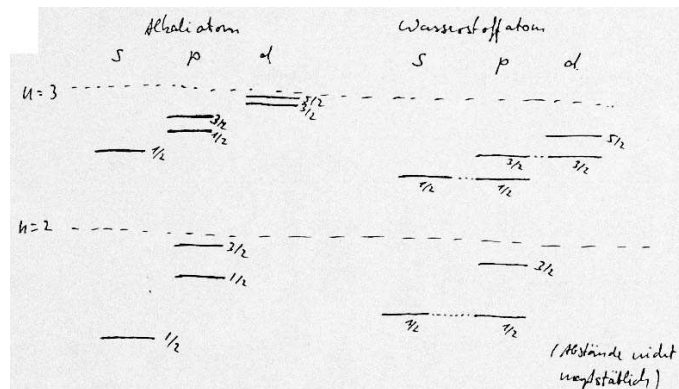 Alkaliatom Wasserstoffatom
s p d s p d
n=3
5/2
3/2
3/2
1/2
1/2
5/2
3/2 3/2
1/2 1/2
n=2
3/2
1/2
1/2
3/2
1/2 1/2
(Abstände nicht
maßstäblich)